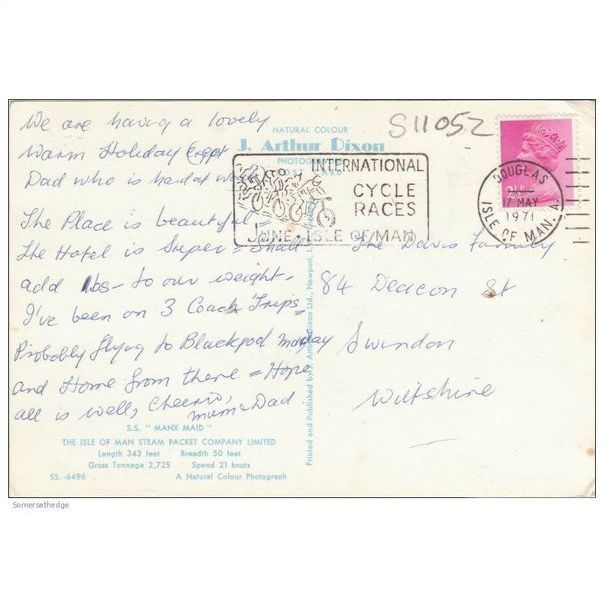 We are having a lovely
Warm Holiday Except
Dad who is hard at work
The Place is beautiful
The Hotel is Super = Shall
add lbs - to our weight.
I've been on 3 Coach Trips
Probably flying to Blackpool monday
and Home from there = Hope
all is well, Cheerio,
mum & Dad
S.S. "MANX MAID"
THE ISLE OF MAN STEAM PACKET COMPANY LIMITED
Length 343 feet Breadth 50 feet
Gross Tonnage 2,725 Speed 21 knots
SS.-6496 A Natural Colour Photograph
NATURAL COLOUR
J. Arthur Dixon
PHOTOGRAPH
S11052
INTERNATIONAL
CYCLE
RACES
JUNE - ISLE OF MAN
DOUGLAS
17 MAY
1971
ISLE OF MAN. A.
2½
The Davis Family
84 Deacon St
Swindon
Wiltshire
Printed and Published by J. Arthur Dixon Ltd., Newport,
Somersethedge